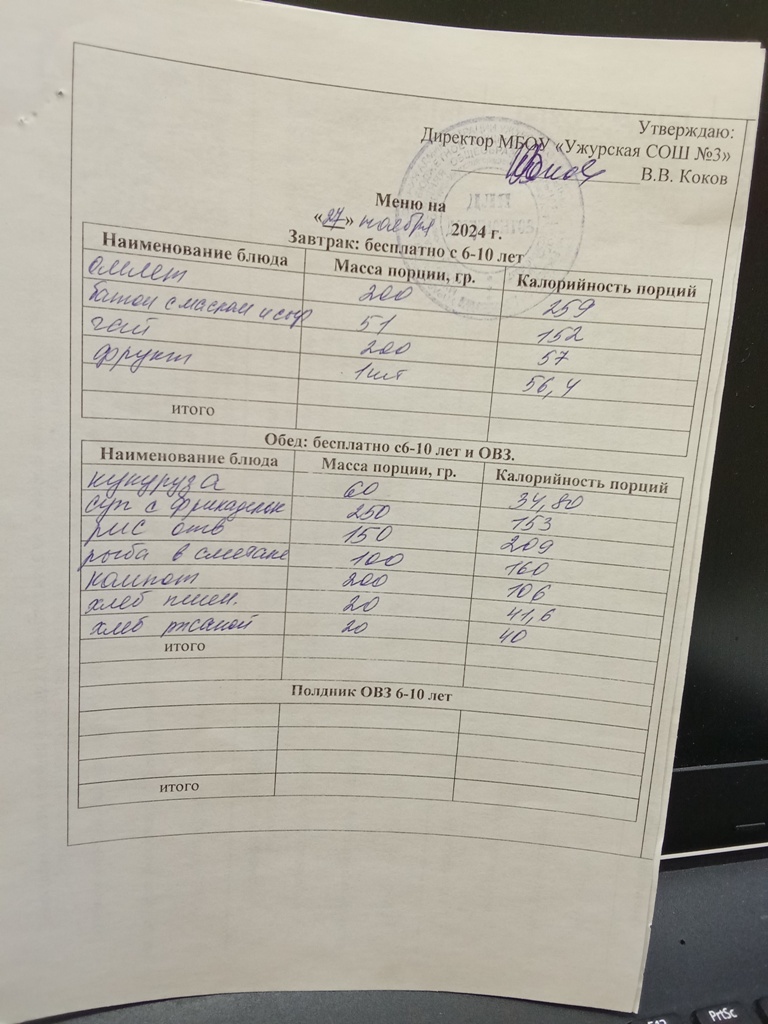 Утверждаю:
Директор МБОУ «Ужурская СОШ №3»
В.В. Коков
Меню на
«27» ноября 2024 г.
Завтрак: бесплатно с 6-10 лет
Наименование блюда Масса порции, гр. Калорийность порций
омлет 200 259
батон с маслом и сыр 51 152
чай 200 57
фрукт 1шт 56,4
итого
Обед: бесплатно с6-10 лет и ОВЗ.
Наименование блюда Масса порции, гр. Калорийность порций
кукуруза 60 34,80
суп с фрикадельк 250 153
рис отв 150 209
рыба в сметане 100 160
компот 200 106
хлеб пшен. 20 41,6
хлеб ржаной 20 40
итого
Полдник ОВЗ 6-10 лет
итого
PrtSc